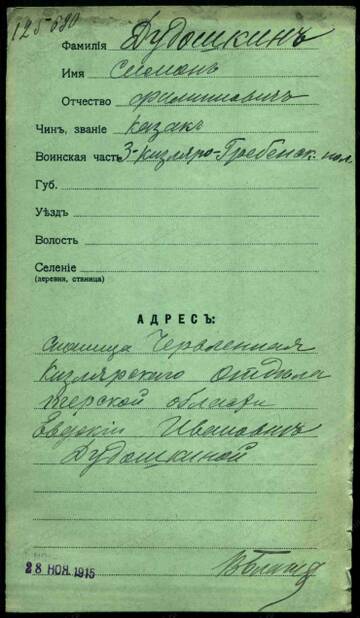 125-690
Фамилія Дудошкинъ
Имя Симонъ
Отчество Филиповичъ
Чин, званіе казакъ
Воинская часть 3-Кизляро-Гребенск. пол.
Губ.
Уѣзд
Волость
Селеніе
(деревня, станица)
АДРЕСЪ:
Станица Червленная
Кизлярского Отдѣла
Терской области
Евдокіи Ивановнъ
Дудошкиной
28 НОЯ. 1915